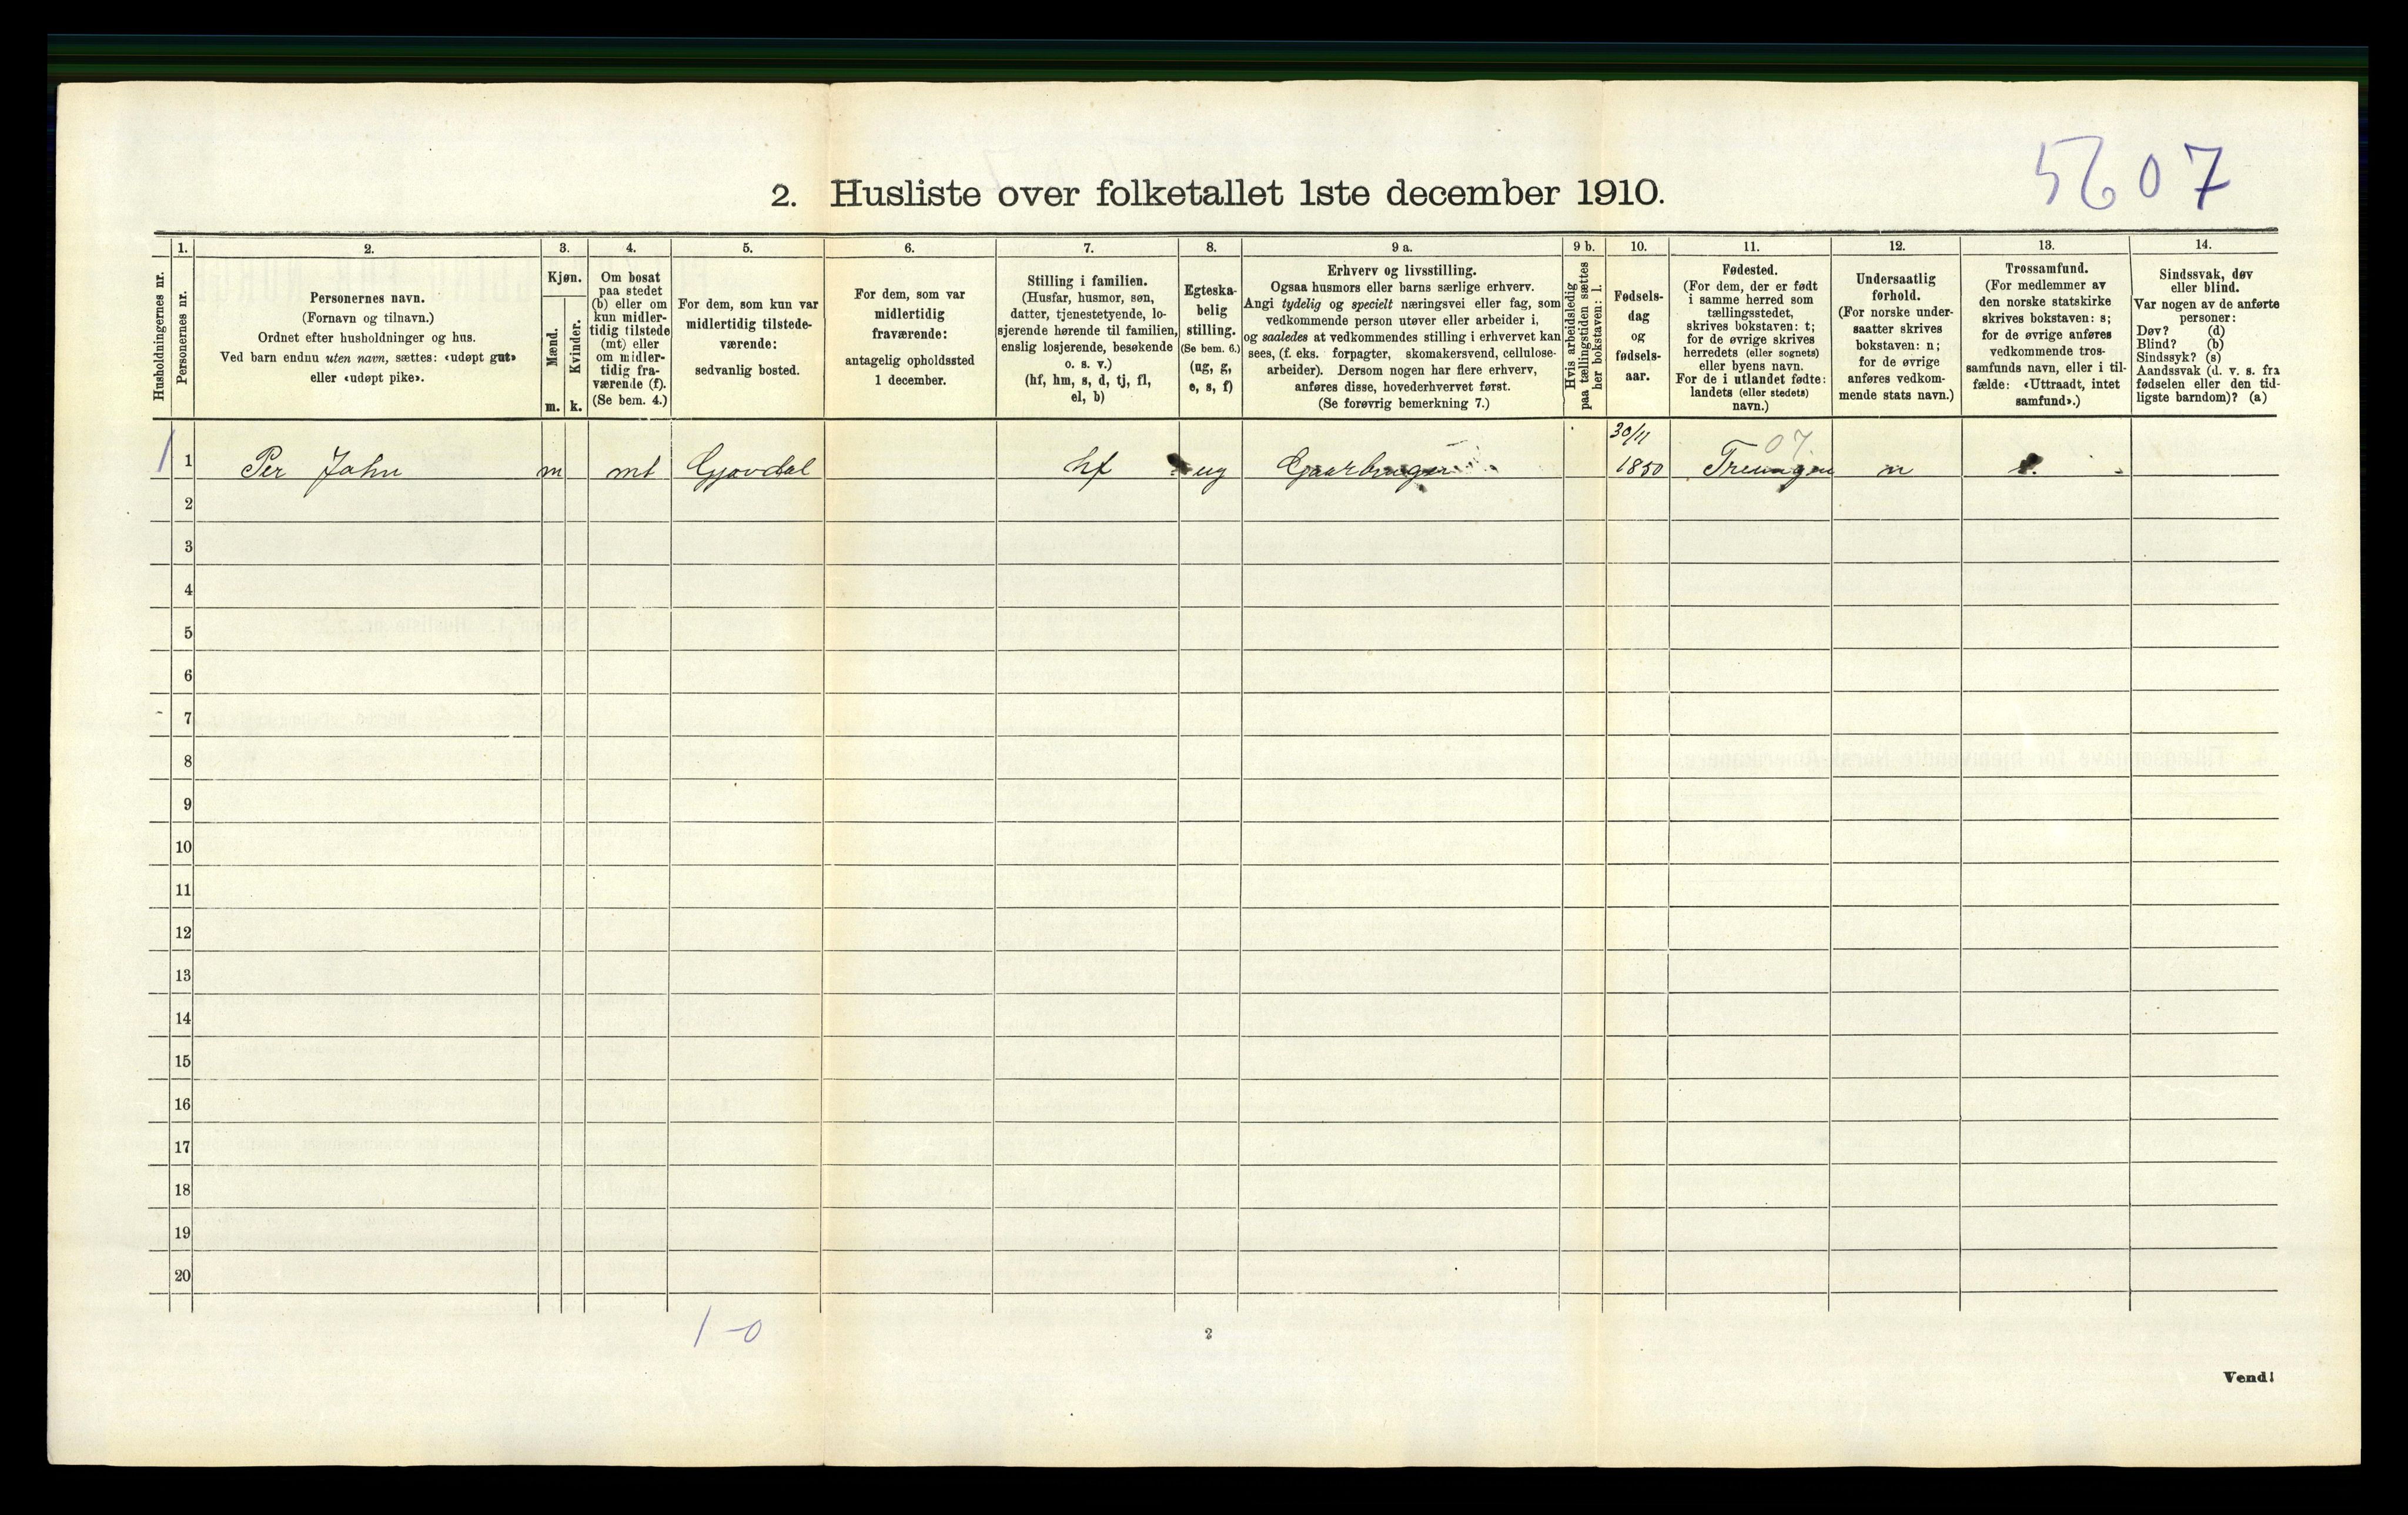 5607
2. Husliste over folketallet 1ste december 1910.
Husholdningernes nr.
1.
Personernes nr.
2.
Personernes navn.
(Fornavn og tilnavn.)
Ordnet efter husholdninger og hus.
Ved barn endnu uten navn, sættes: «udøpt gut»
eller «udøpt pike».
3.
Kjøn.
Mænd.
Kvinder.
m. k.
4.
Om bosat
paa stedet
(b) eller om
kun midler-
tidig tilstede
(mt) eller
om midler-
tidig fra-
værende (f).
(Se bem. 4.)
5.
For dem, som kun var
midlertidig tilstede-
værende:
sedvanlig bosted.
6.
For dem, som var
midlertidig
fraværende:
antagelig opholdssted
1 december.
7.
Stilling i familien.
(Husfar, husmor, søn,
datter, tjenestetyende, lo-
sjerende hørende til familien,
enslig losjerende, besøkende
o. s. v.)
(hf, hm, s, d, tj, fl,
el, b)
8.
Egteska-
belig
stilling.
(Se bem. 6.)
(ug, g,
e, s, f)
9 a.
Erhverv og livsstilling.
Ogsaa husmors eller barns særlige erhverv.
Angi tydelig og specielt næringsvei eller fag, som
vedkommende person utøver eller arbeider i,
og saaledes at vedkommendes stilling i erhvervet kan
sees, (f. eks. forpagter, skomakersvend, cellulose-
arbeider). Dersom nogen har flere erhverv,
anføres disse, hovederhvervet først.
(Se forøvrig bemerkning 7.)
9 b.
Hvis arbeidsledig
paa tællingstiden sættes
her bokstaven: l.
10.
Fødsels-
dag
og
fødsels-
aar.
11.
Fødested.
(For dem, der er født
i samme herred som
tællingsstedet,
skrives bokstaven: t;
for de øvrige skrives
herredets (eller sognets)
eller byens navn.
For de i utlandet fødte:
landets (eller stedets)
navn.)
12.
Undersaatlig
forhold.
(For norske under-
saatter skrives
bokstaven: n;
for de øvrige
anføres vedkom-
mende stats navn.)
13.
Trossamfund.
(For medlemmer av
den norske statskirke
skrives bokstaven: s;
for de øvrige anføres
vedkommende tros-
samfunds navn, eller i til-
fælde: «Uttraadt, intet
samfund».)
14.
Sindssvak, døv
eller blind.
Var nogen av de anførte
personer:
Døv? (d)
Blind? (b)
Sindssyk? (s)
Aandssvak (d. v. s. fra
fødselen eller den tid-
ligste barndom)? (a)
30/11 07.
1 1 Per Jahn m mt Gjøvdal hf ug Gaarbruger 1850 Treungen n s.
2
3
4
5
6
7
8
9
10
11
12
13
14
15
16
17
18
19
20
1-0
2
Vend!